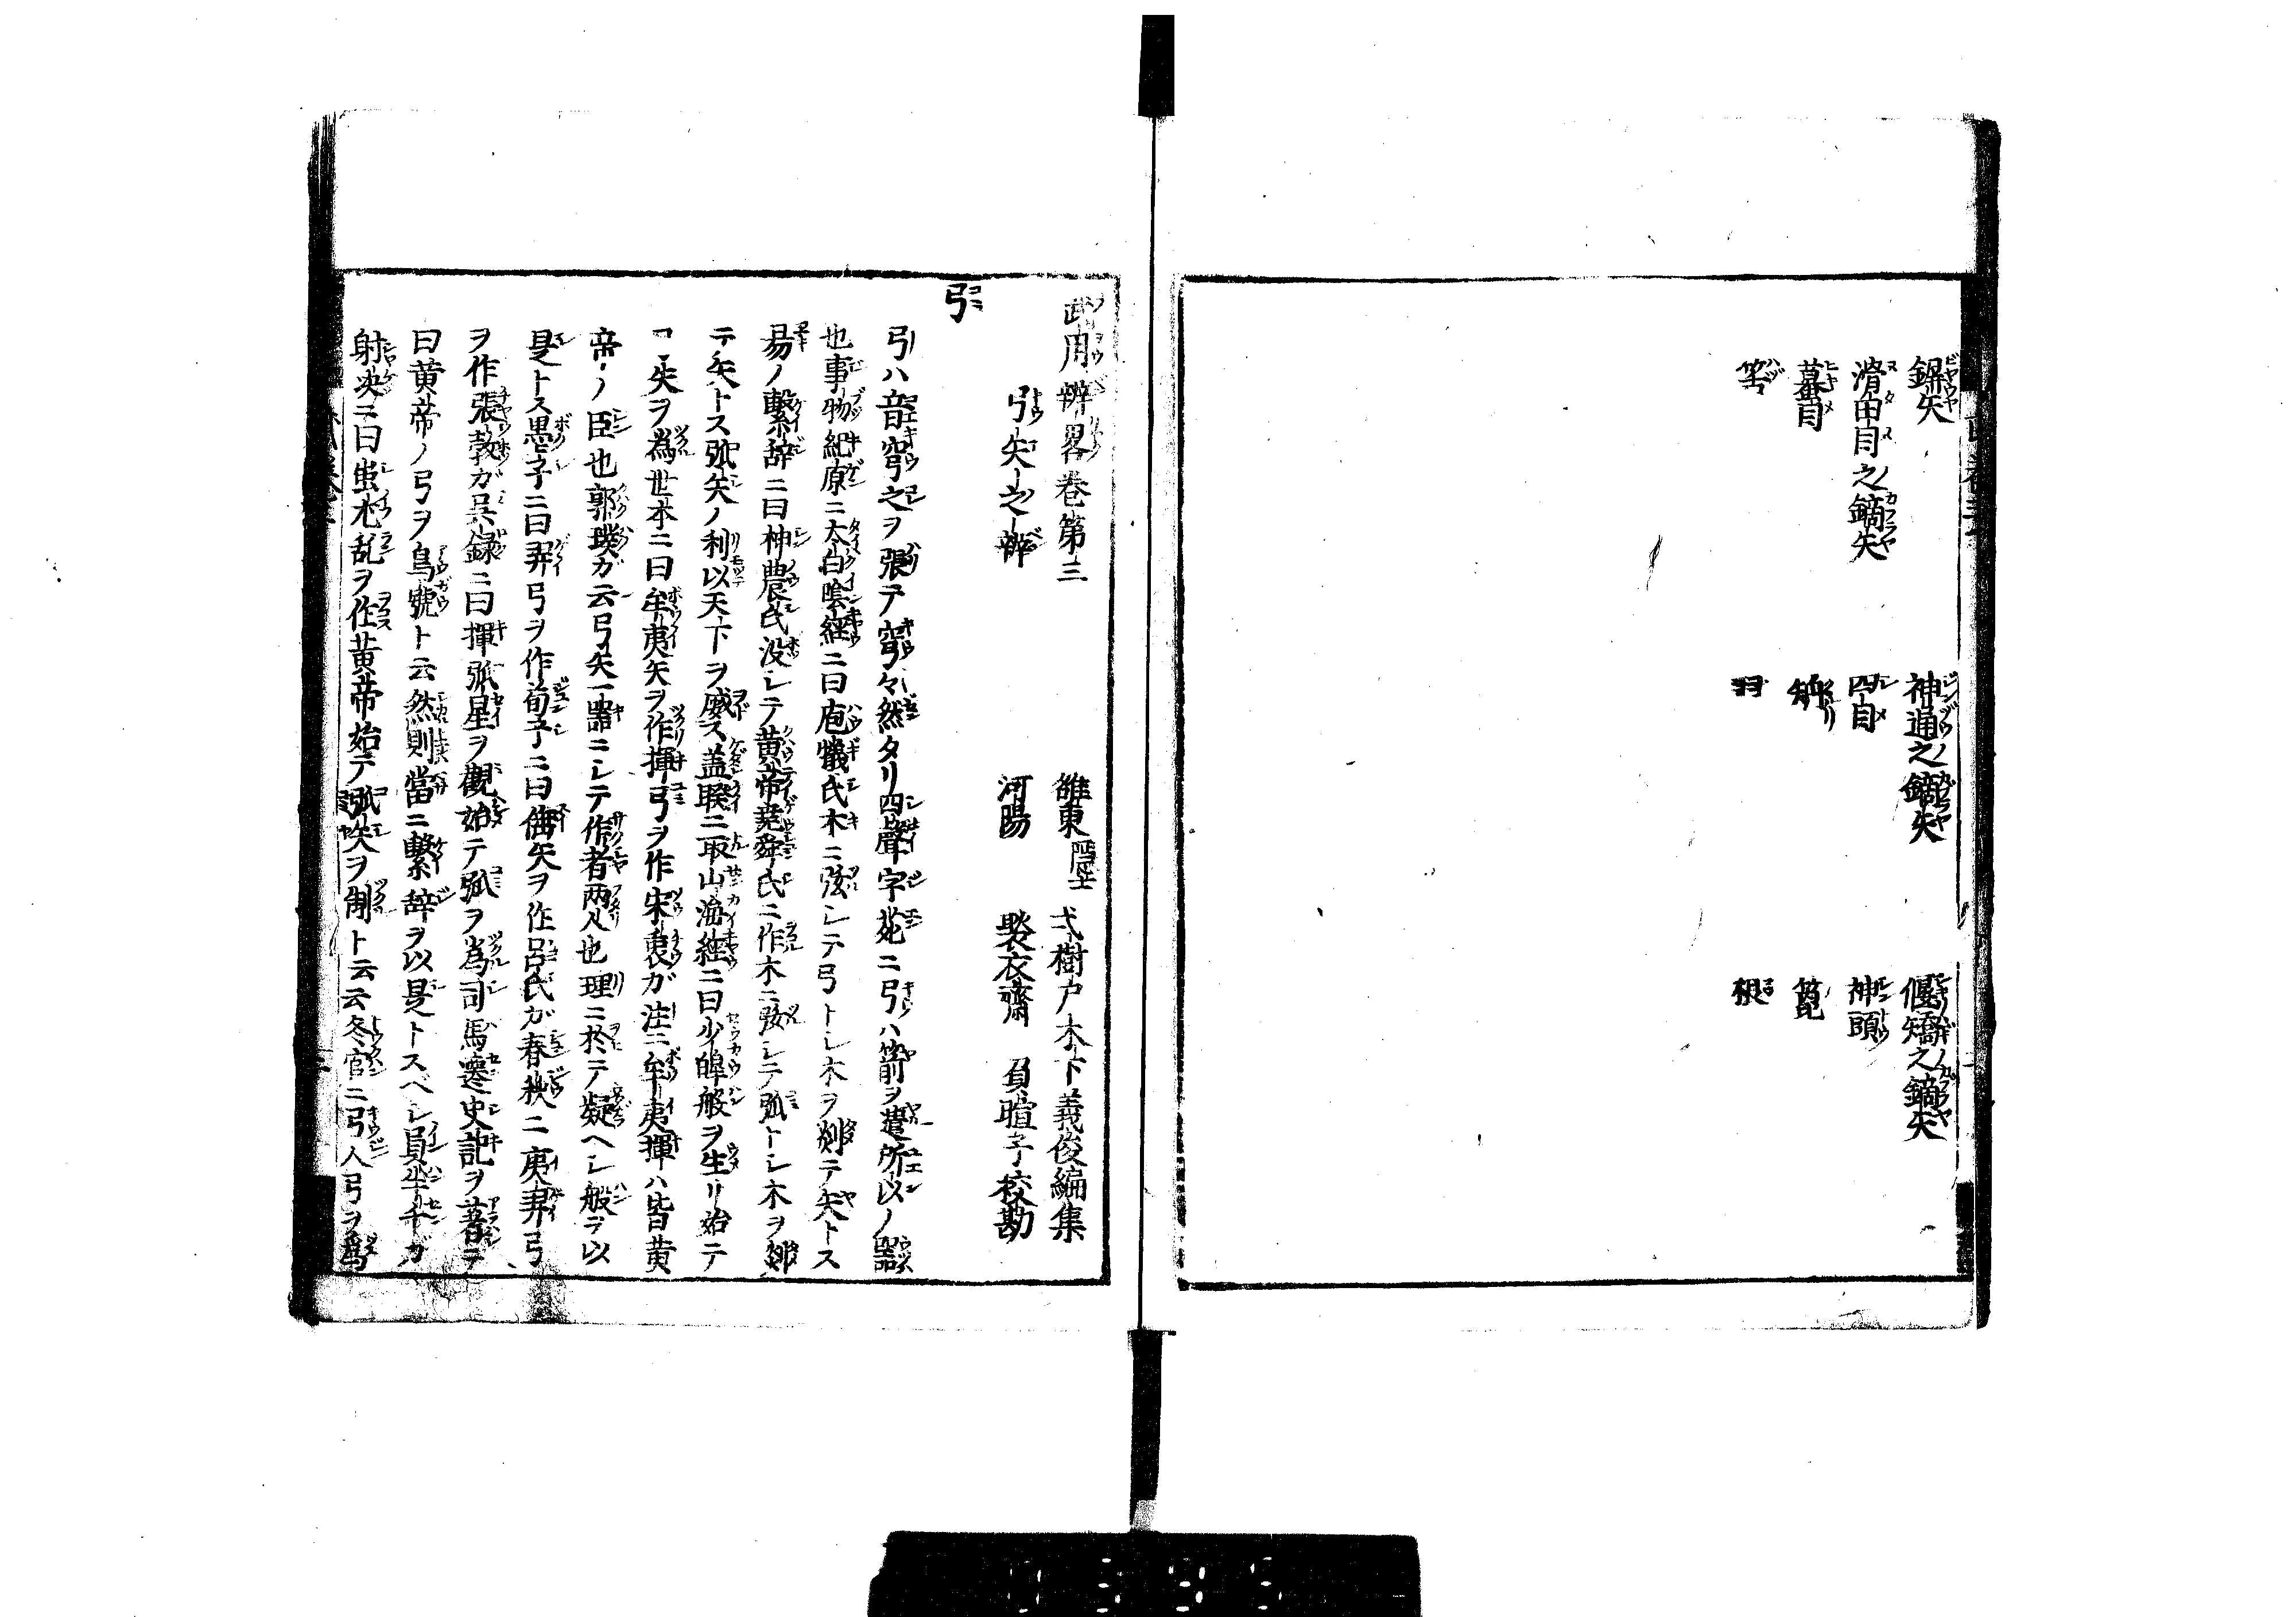 鏑矢 神通之鏑矢 偃矯之鏑矢
滑田目之鏑矢 四目 神頭
蟇目 矯 箆
筈 羽 根
武用辨畧巻第三
雒東 隠士 弌樹戸木下義俊編集
弓矢之辨
河陽 褧衣齋 負暄子校勘
弓
弓ハ音穹之ヲ張テ穹々然タリ四聲字苑ニ弓ハ箭ヲ遣所以ノ器
也事物紀原ニ太白陰経ニ曰庖犧氏木ニ弦シテ弓トシ木ヲ剡テ矢トス
易ノ繋辞ニ曰神農氏没シテ黄帝堯舜氏ニ作木ニ弦シテ弧トシ木ヲ剡
テ矢トス弧矢ノ利以天下ヲ威ス盖睽ニ取山海経ニ曰少皥般ヲ生リ始テ
弓矢ヲ為世本ニ曰牟夷矢ヲ作揮弓ヲ作宋衷ガ注ニ牟夷揮ハ皆黄
帝ノ臣也郭璞ガ云弓矢一器ニシテ作者両人也理ニ於テ疑ヘシ般ヲ以
是トス墨子ニ曰羿弓ヲ作荀子ニ曰倕矢ヲ作呂氏ガ春秋ニ夷羿弓
ヲ作張敦ガ呉録ニ曰揮弧星ヲ觀始テ弧ヲ為司馬遷史記ヲ著テ
曰黄帝ノ弓ヲ烏號ト云然則當ニ繋辞ヲ以是トスベシ員半千ガ
射决ニ曰蚩尤乱ヲ作黄帝始テ弧矢ヲ制ト云云冬官ニ弓人弓ヲ為